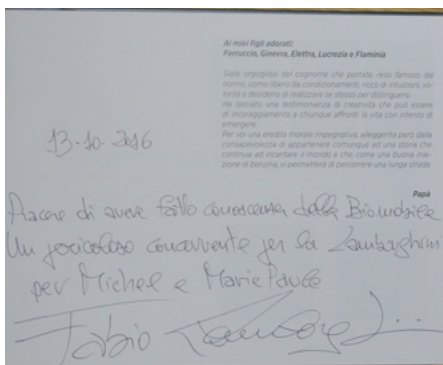 Ai miei figli adorati:
Ferruccio, Ginevra, Elettra, Lucrezia e Flaminia
Siate orgogliosi del cognome che portate, reso famoso dal
nonno, uomo libero da condizionamenti, ricco di intuizioni, vo-
lontà e desiderio di realizzare se stesso per distinguersi.
Ha lasciato una testimonianza di creatività che può essere
di incoraggiamento a chiunque affronti la vita con intento di
emergere.
Per voi una eredità morale impegnativa alleggerita però dalla
consapevolezza di appartenere comunque ad una storia che
continua ad incantare il mondo e che, come una buona inie-
zione di benzina, vi permetterà di percorrere una lunga strada.
Papà
13-10-2016
Piacere di avere fatto conoscenza della
Un pericoloso concorrente per la Lamborghini
per Michel e Marie Paule
Fabio Lamborghini